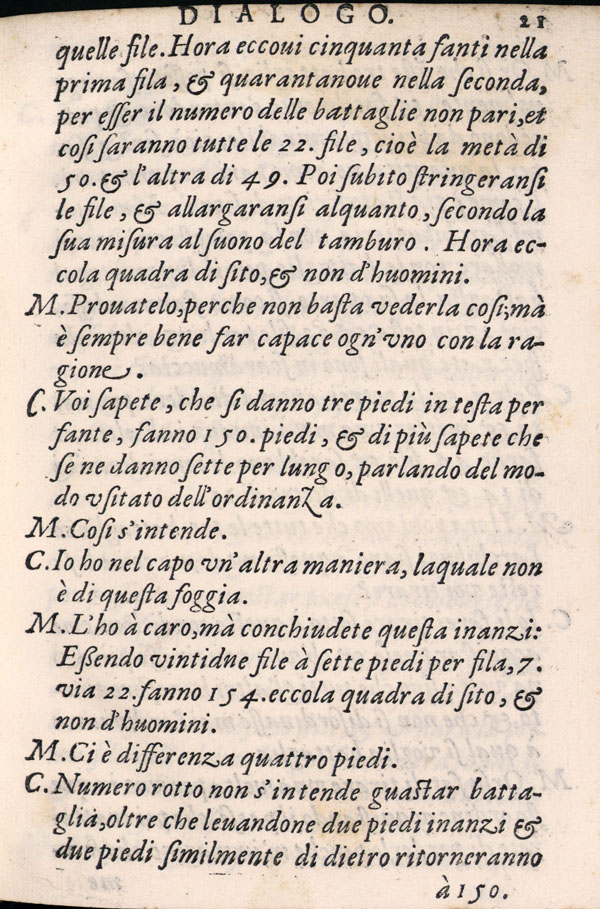 DIALOGO. 21
quelle file. Hora eccoui cinquanta fanti nella
prima fila, & quarantanoue nella ſeconda,
per eſſer il numero delle battaglie non pari, et
coſi ſaranno tutte le 22. file, cioè la metà di
50. & l'altra di 49. Poi ſubito ſtringeranſi
le file, & allargaranſi alquanto, ſecondo la
ſua miſura al ſuono del tamburo. Hora ec-
cola quadra di ſito, & non d'huomini.
M. Prouatelo, perche non baſta vederla coſi; mà
è ſempre bene far capace ogn'vno con la ra-
gione.
C. Voi ſapete, che ſi danno tre piedi in teſta per
fante, fanno 150. piedi, & di più ſapete che
ſe ne danno ſette per lungo, parlando del mo-
do vſitato dell'ordinanza.
M. Coſi s'intende.
C. Io ho nel capo vn'altra maniera, laquale non
è di queſta foggia.
M. L'ho à caro, mà conchiudete queſta inanzi:
Eßendo vintidue file à ſette piedi per fila, 7.
via 22. fanno 154. eccola quadra di ſito, &
non d'huomini.
M. Ci è differenza quattro piedi.
C. Numero rotto non s'intende guaſtar batta-
glia, oltre che leuandone due piedi inanzi &
due piedi ſimilmente di dietro ritorneranno
à 150.